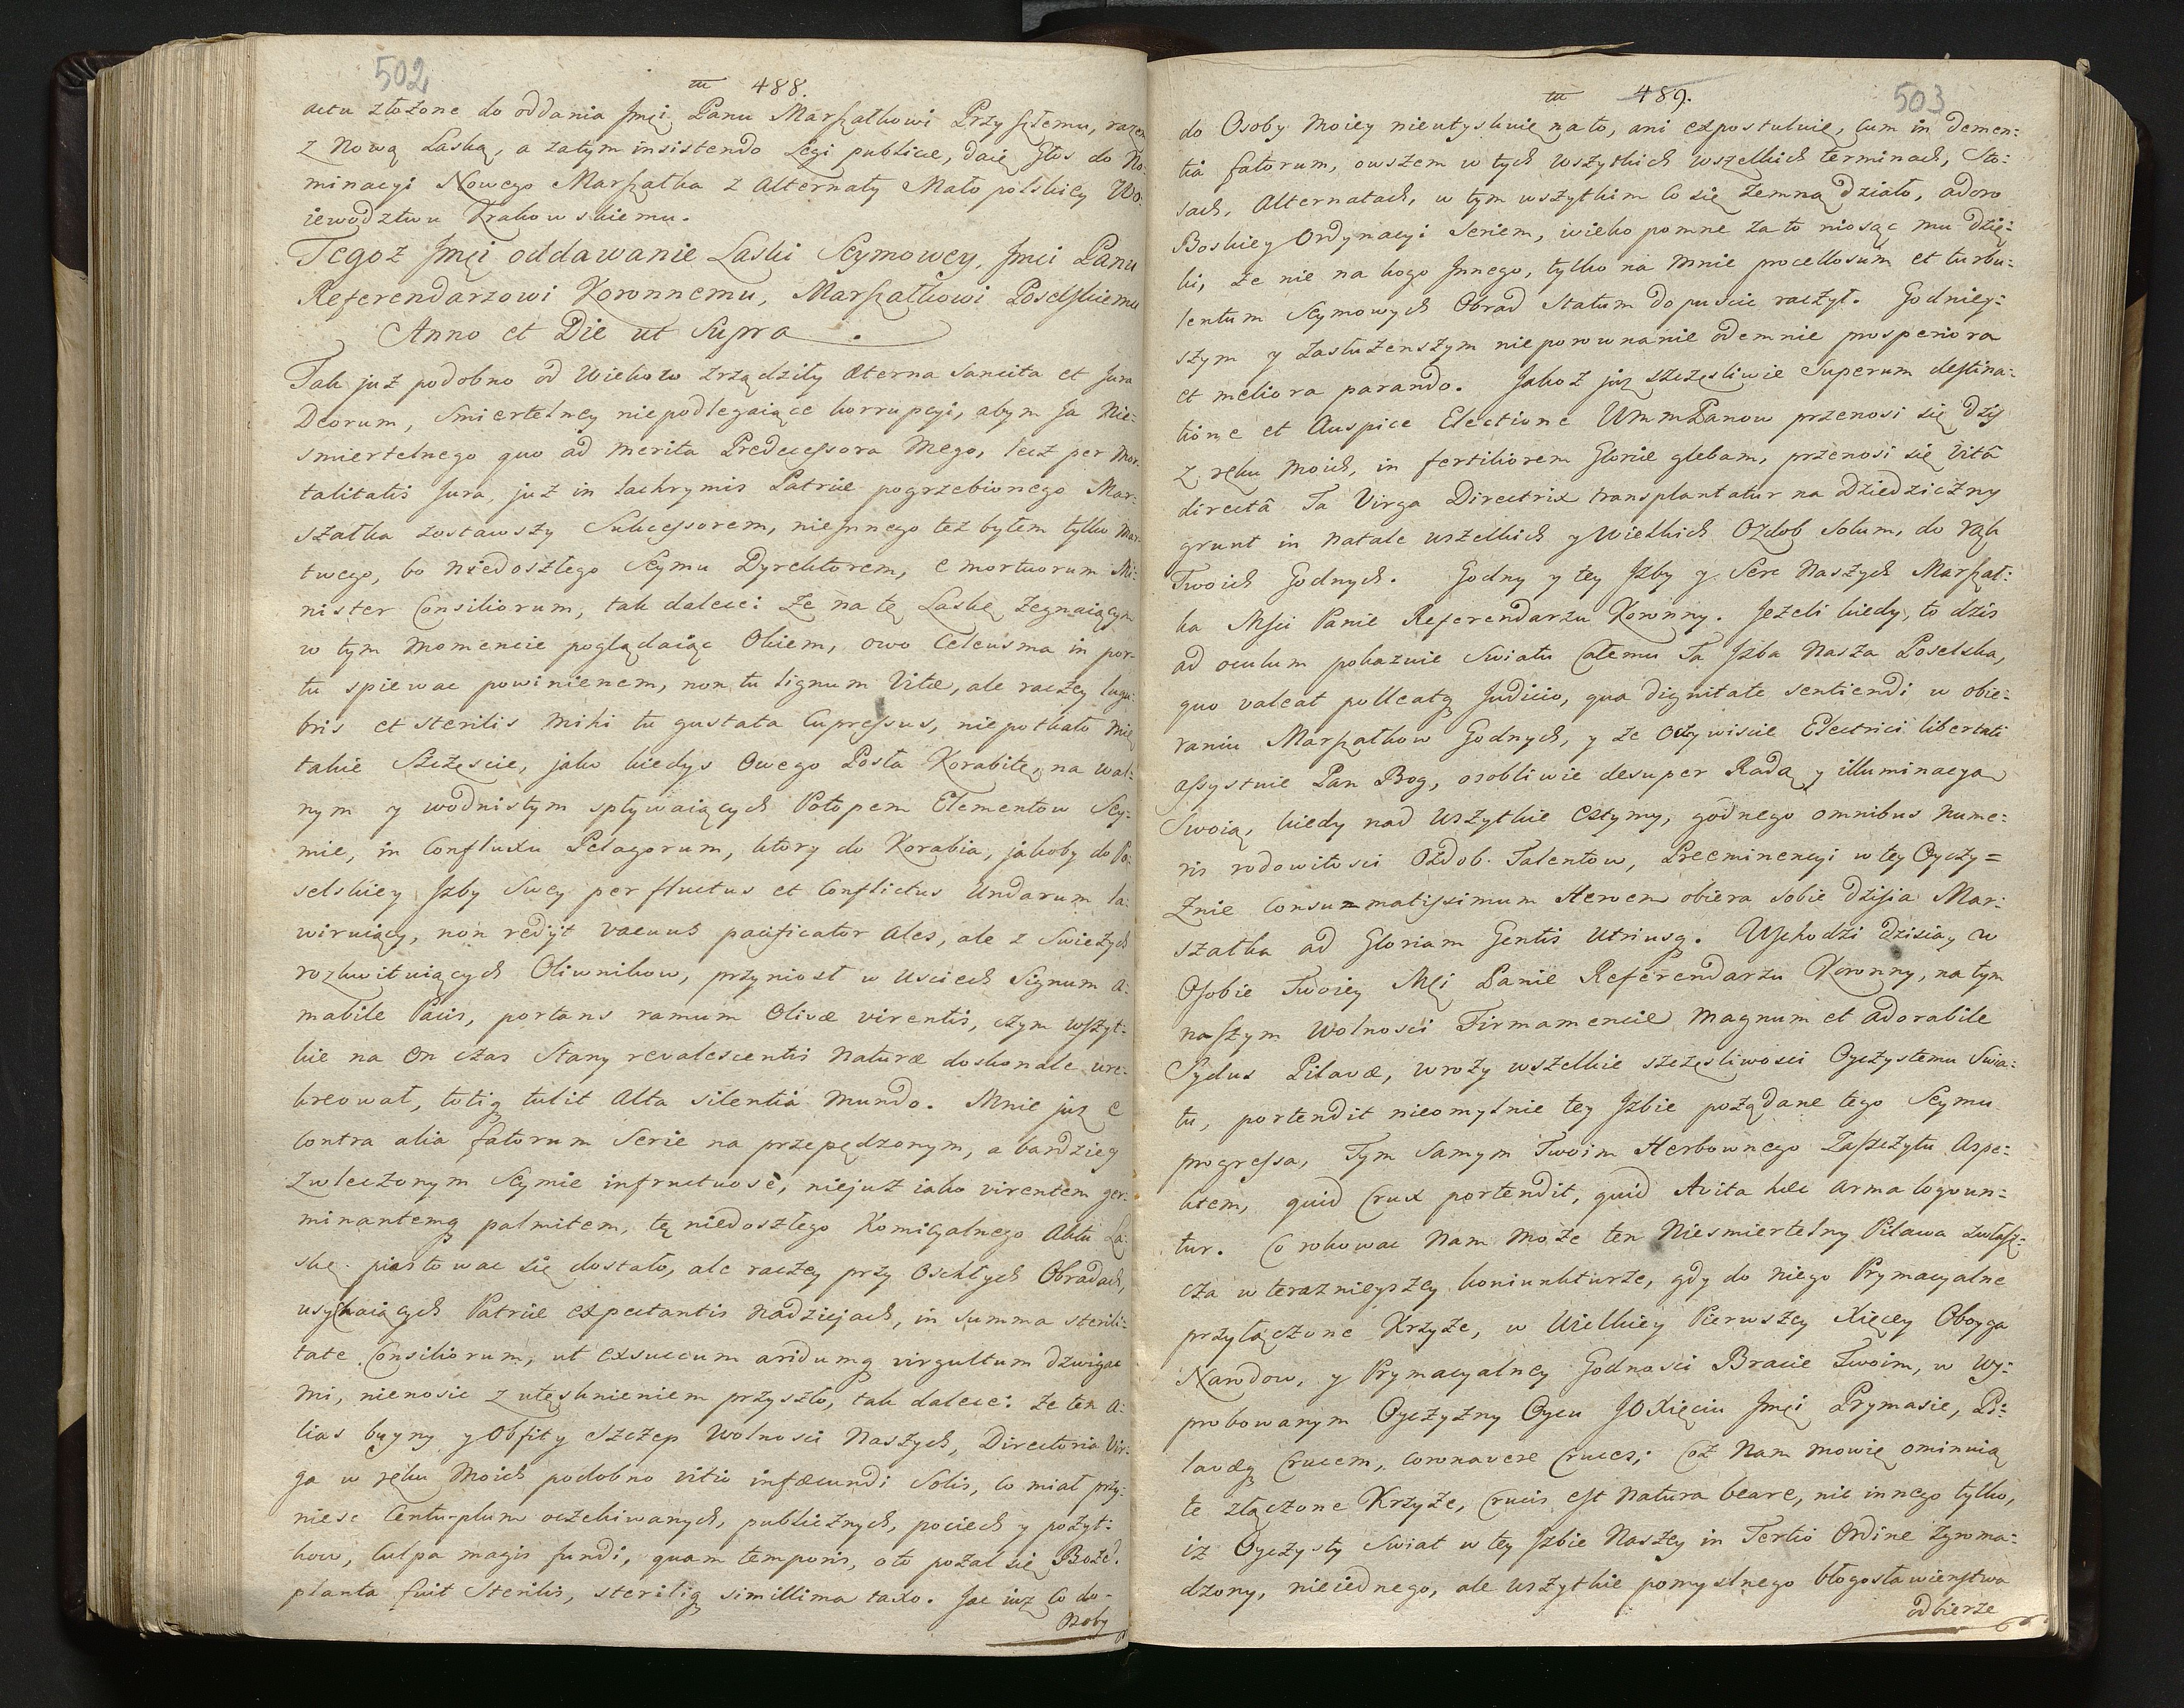 502
m 488.
actu złożone do oddania Jmći Panu Marszałkowi Przyszłemu, razem
z Nową Laską, a zatym insistendo Legi publicæ, daię Głos do No:
minacyi Nowego Marszałka z Alternaty Małopolskiey Wo:
iewodztwu Krakowskiemu.
Tegoż Jmći oddawanie Laski Seymowey, Jmći Panu
Referendarzowi Koronnemu, Marszałkowi Poselskiemu
Anno et Die ut Supra.
Tak już podobno od Wiekow zrządziły æterna Sancita et Jura
Deorum, Smiertelney niepodlegaiące korrupcyi, abym Ja Nie:
smiertelnego quo ad merita Predecessora Mego, lecz per Mor:
talitatis Jura, już in lachrymis Patriæ pogrzebionego Mar:
szałka zostawszy Sukcessorem, nieinnego też byłem tylko Mar:
twego, bo niedoszłego Seymu Dyrektorem, e mortuorum Mi:
nister Consiliorum, tak dalece: że na tę Laskę żegnaiącym
w tym Momencie poglądaiąc Okiem, owo Celeusma in por:
tu spiewac powinienem, non tu lignum Vitæ, ale raczey lugu:
bris et sterilis mihi tu gustata Cupressus, niepotkało mię
takie Szczęscie, jako kiedys Owego Posła Korabitę, na wal:
nym y wodnistym spływaiących Potopem Elementow Sey:
mie, in Confluxu Pelagorum, ktory do Korabia, jakoby do Po:
selskiey Jzby Swey per fluctus et Conflictus Undarum la:
wiruiący, non redijt vacuus pacificator Ales, ale z Swieżych
rozkwituiących Oliwnikow, przyniosł w Usciech Signum a:
mabile Pacis, portans ramum Olivæ virentis, czym wszyt:
kie na On czas Stany revalescentis Naturæ doskonale ure:
kreował, totiq tulit alta silentia Mundo. Mnie już e
contra alia fatorum Serie na przepędzonym, a bardziey
zwleczonym Seymie infructuosè, niejuż iako virentem ger:
minantemq palmitem, tę niedoszłego Komicyalnego Aktu La:
skę piastowac się dostało, ale raczey przy Oschłych Obradach,
usychaiących Patriæ expectantis nadziejach, in summa sterili:
tate Consiliorum, ut exsuccum aridumq virgultum dzwigac
mi, nienosic z utęsknieniem przyszło, tak dalece: że ten a:
lias buyny y Obfity Szczep Wolnosci Naszych, Directoria Vir:
ga w ręku Moich podobno vitio infæcundi Solis, co miał przy:
niesc Centuplum oczekiwanych, publicznych, pociech y pożyt:
kow, culpa magis fundi, quam temporis, oto pożal się Boże!
planta fuit Sterilis, steriliq simillima taxo. Jac iuż co do
Osoby
503
m 489.
do Osoby Moiey nieutyskuię na to, ani expostuluię, cum in demen:
tia fatorum, owszem w tych wszytkich wszelkich terminach, Sto:
sach, Alternatach, w tym wszytkim co się zemną działo, adoro
Boskiey Ordynacyi Seriem, wiekopomne za to niosąc mu dzię:
ki, że nie na kogo Jnnego, tylko na Mnie procellosum et turbu:
lentum Seymowych Obrad Statum dopuscic raczył. Godniey:
szym y zasłużenszym nieporownanie odemnie prosperiora
et meliora parando. Jakoż już szczęsliwie Superum destina:
tione et Auspice Electione WmmPanow przenosi się dzis
z ręku Moich, in fertiliorem Gloriæ glebam, przenosi się Vitâ
directâ Ta Virga Directrix transplantatur na Dziedziczny
grunt in Natale wszelkich y Wielkich Ozdob Solum, do rąk
Twoich Godnych. Godny y tey Jzby y Serc Naszych Marszał:
ku Msci Panie Referendarzu Koronny. Jeżeli kiedy, to dzis
ad oculum pokazuie Swiatu Całemu Ta Jzba Nasza Poselska,
quo valeat polleatq Judicio, qua dignitate sentiendi w obie:
raniu Marszałkow Godnych, y że Oczywiscie Electrici libertati
assystuie Pan Bog, osobliwie desuper Radą y illuminacyą
Swoią, kiedy nad wszytkie Estymy, godnego omnibus nume:
ris rodowitosci Ozdob. Talentow, Preeminencyi w tey Oyczy=
znie Consu=matissimum Heroem obiera sobie dzisia Mar:
szałka ad Gloriam Gentis Utriusq. Wschodzi dzisiay w
Osobie Twoiey Mći Panie Referendarzu Koronny, na tym
naszym Wolnosci Firmamencie Magnum et adorabile
Sydus Pilavæ, wroży wszelkie szczęsliwosci Oyczystemu Swia:
tu, portendit nieomylnie tey Jzbie pożądane tego Seymu
progressa, Tym Samym Twoim Herbownego Zaszczytu Aspe:
ktem, quid Crux portendit, quid Avita hæc arma loquun:
tur. Co rokowac Nam może ten Niesmiertelny Pilawa zwłasz:
cza w teraznieyszey koniunkturze, gdy do niego Prymacyalne
przyłączone Krzyże, w Wielkiey Pierwszey Xięcey Oboyga
Narodow, y Prymacyalney Godnosci Bracie Twoim, w Wy:
probowanym Oyczyzny Oycu JOXięciu Jmći Prymasie, Pi:
lavæq Crucem, coronavere Cruces; Coż Nam mowię ominuią
te złączone Krzyże, Crucis est Natura beare, nic innego tylko,
iż Oyczysty Swiat w tey Jzbie Naszey in Tertio Ordine zgroma:
dzony, nieiednego, ale wszytkie pomyslnego błogosławienstwa
odbierze